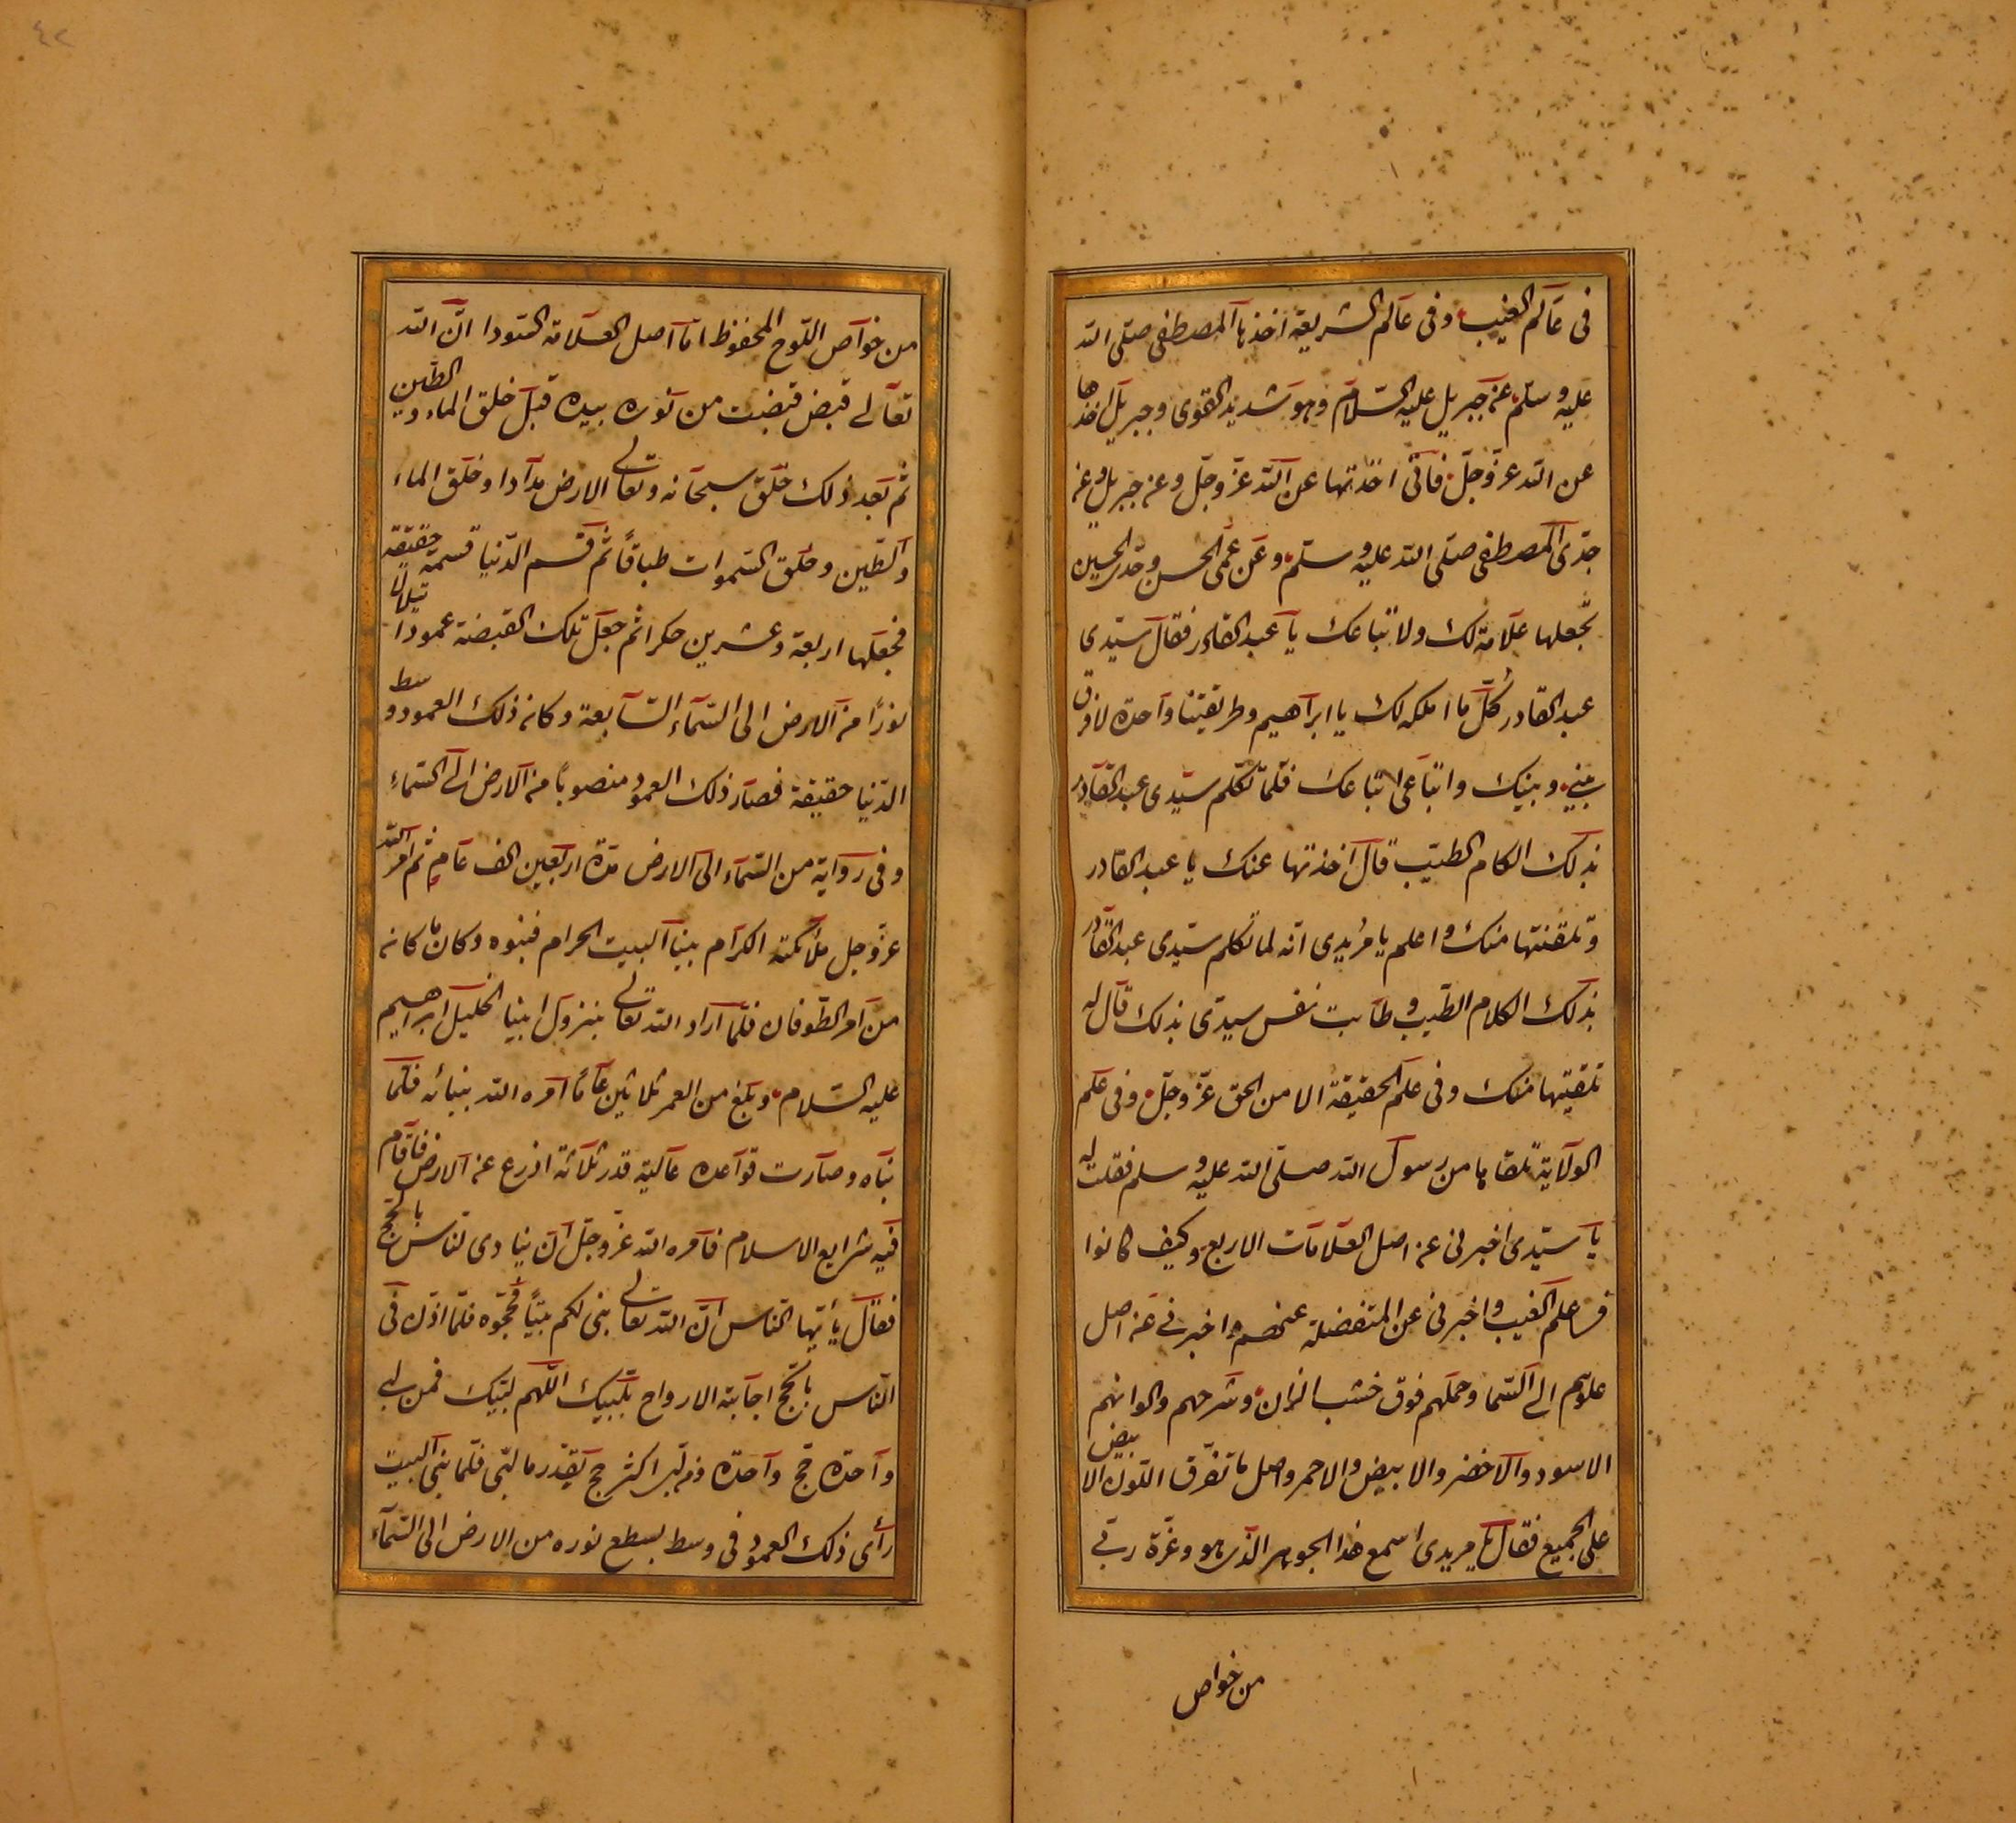 فى عالم الغيب وفى عالم الشريعة اخذها المصطفى صلى الله
عليه وسلم عن جبريل عليه السلام وهو شديد القوى وجبريل اخذها
عن الله عز وجل فانى اخذتها عن الله عز وجل وعن جبريل وعن
جدى المصطفى صلى الله عليه وسلم وعن عمى الحسن وجدى الحسين
نجعلها علامة لك ولاتباعك يا عبد القادر فقال سيدى
عبد القادر كل ما املكه لك يا ابراهيم وطريقتنا واحدة لا فرق
بينى وبينك واتباعى اتباعك فلما تكلم سيدى عبد القادر
بذلك الكلام الطيب قال اخذتها عنك يا عبد القادر
وتلقنتها منك واعلم يا مريدى انه لما تكلم سيدى عبد القادر
بذلك الكلام الطيب وطابت نفس سيدى بذلك قال له
تلقيتها منك وفى علم الحقيقة الا من الحق عز وجل وفى علم
الولاية تلقاها من رسول الله صلى الله عليه وسلم فقلت له
يا سيدى اخبرنى عن اصل العلامات الاربع وكيف كانوا
فى علم الغيب واخبرنى عن المتفضلة عنهم واخبرنى عن اصل
علوهم الى السما وحملهم فوق خشب الزان وشرحهم والوانهم
الاسود والاخضر والابيض والاحمر واصل ما تفرق اللون الابيض
على الجميع فقال يا مريدى اسمع هذا الجوهر الذى هو وعزة ربى
من خواص
٤٢
من خواص اللوح المحفوظ اما اصل العلامة السودا ان الله
تعالى قبض قبضت من نوره بيده قبل خلق الماء والطين
ثم بعد ذلك خلق سبحانه وتعالى الارض مدادا وخلق الماء
والطين وخلق السموات طباقًا ثم قسم الدنيا قسمة حقيقة
فجعلها اربعة وعشرين حكرا ثم جعل تلك القبضة عمودا يتلالا
نورًا من الارض الى السماء السابعة وكان ذلك العمود وسط
الدنيا حقيقة فصار ذلك العمود منصوبا من الارض الى السماء
وفى رواية من السماء الى الارض مدة اربعين الف عام ثم امر الله
عز وجل ملائكته الكرام ببنا البيت الحرام فبنوه وكان ما كان
من امر الطوفان فلما اراد الله تعالى بنزول ابينا الخليل ابراهيم
عليه السلام وبلغ من العمر ثلاثين عامًا امره الله ببنائه فلما
بناه وصارت قواعده عالية قدر ثلاثة اذرع عن الارض فاقام
فيه شرايع الاسلام فامره الله عز وجل ان ينادى للناس بالحج
فقال يا ايها الناس ان الله تعالى بنى لكم بيتًا فحجوه فلما اذن فى
الناس بالحج اجابته الارواح بلبيك اللهم لبيك فمن لبى
واحدة حج واحدة ومن لبى اكثر حج بقدر ما لبى فلما بنى البيت
رأى ذلك العمود فى وسط يسطع نوره من الارض الى السماء